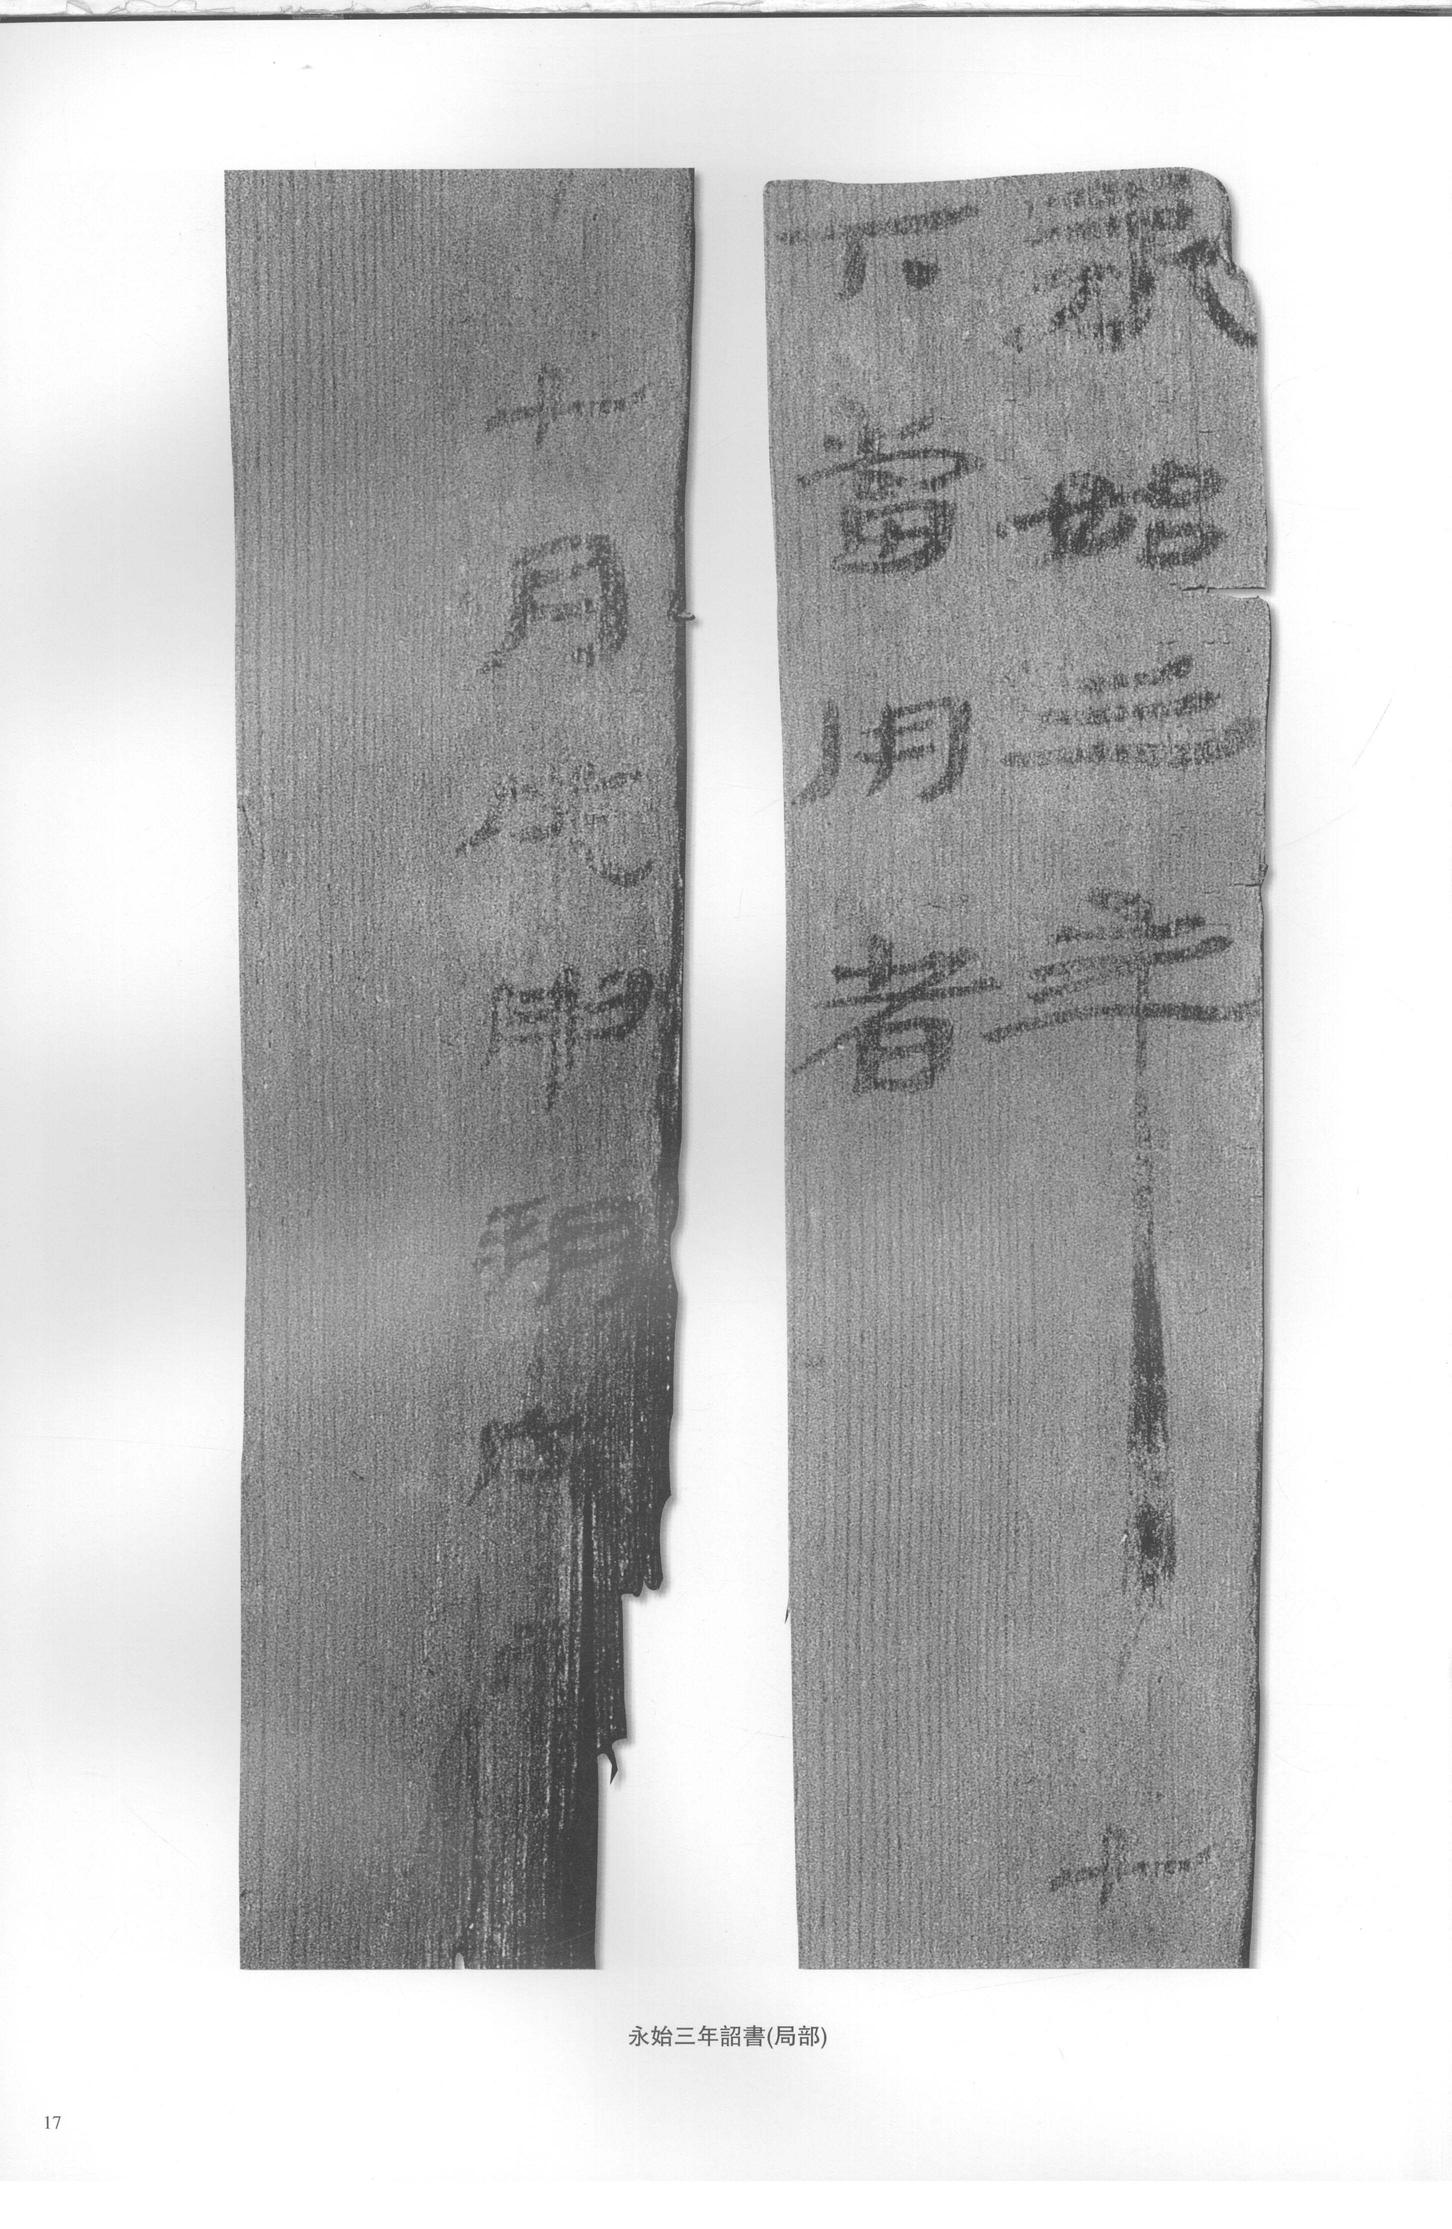 永始三年七
下當用者
七月戊申朔
永始三年詔書(局部)
17